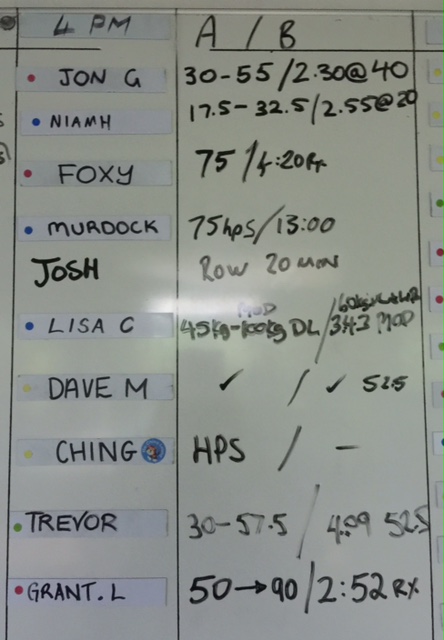 4 PM A / B
JON G 30-55/2.30@40
NIAMH 17.5-32.5/2.55@20
FOXY 75/4:20Rx
MURDOCK 75hps/13:00
JOSH Row 20 MIN
MOD
LISA C 45kg-100kg DL/3:43 MOD
DAVE M ✓ / ✓ 52.5
CHING HPS / -
TREVOR 30-57.5 / 4:09 52.5
GRANT. L 50→90/2:52 RX